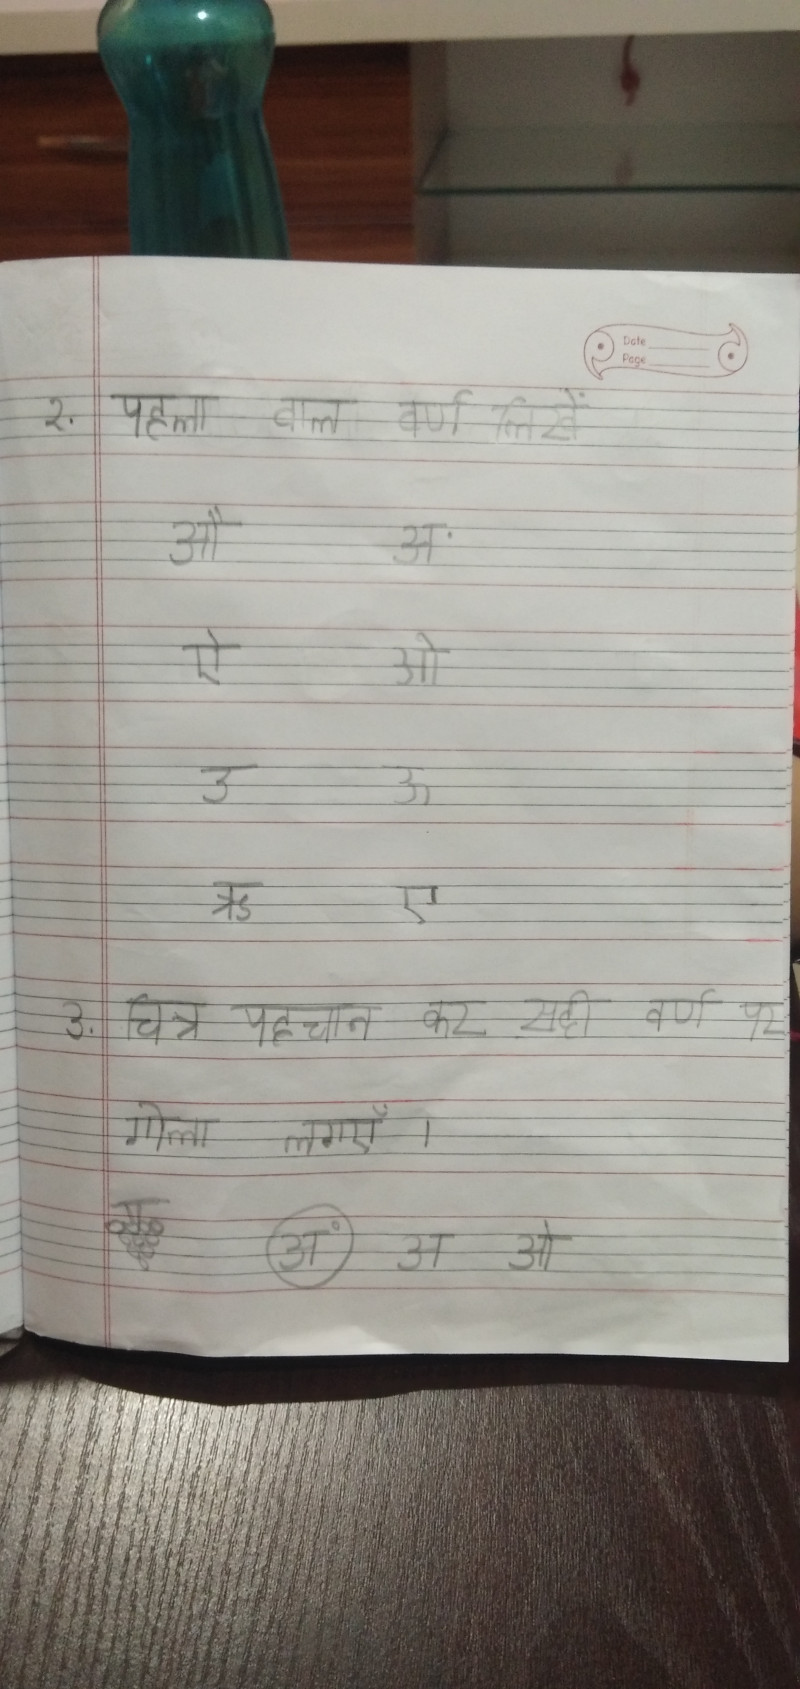 Date
Page
२. पहला वाल वर्ण लिखें
औ अं
ऐ ओ
उ ऊ
ऋ ए
3. चित्र पहचान कर सही वर्ण पर
गोला लगाएँ ।
अं अ ओ